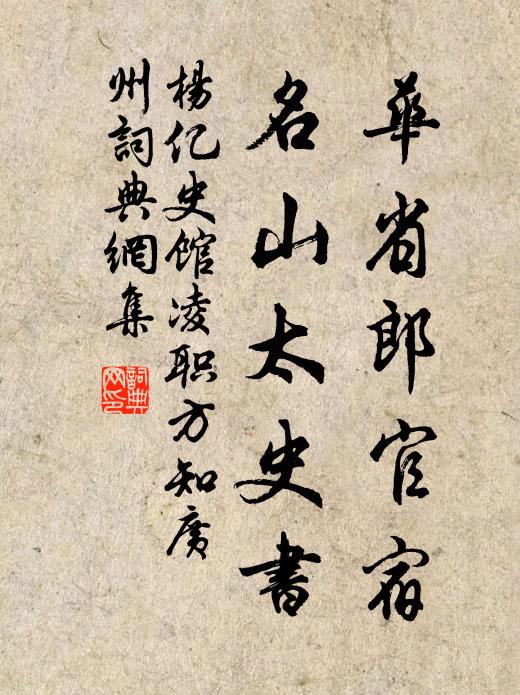 華省郎官宿
名山太史書
楊亿史館凌职方知廣
州詞典網集
詞典網印